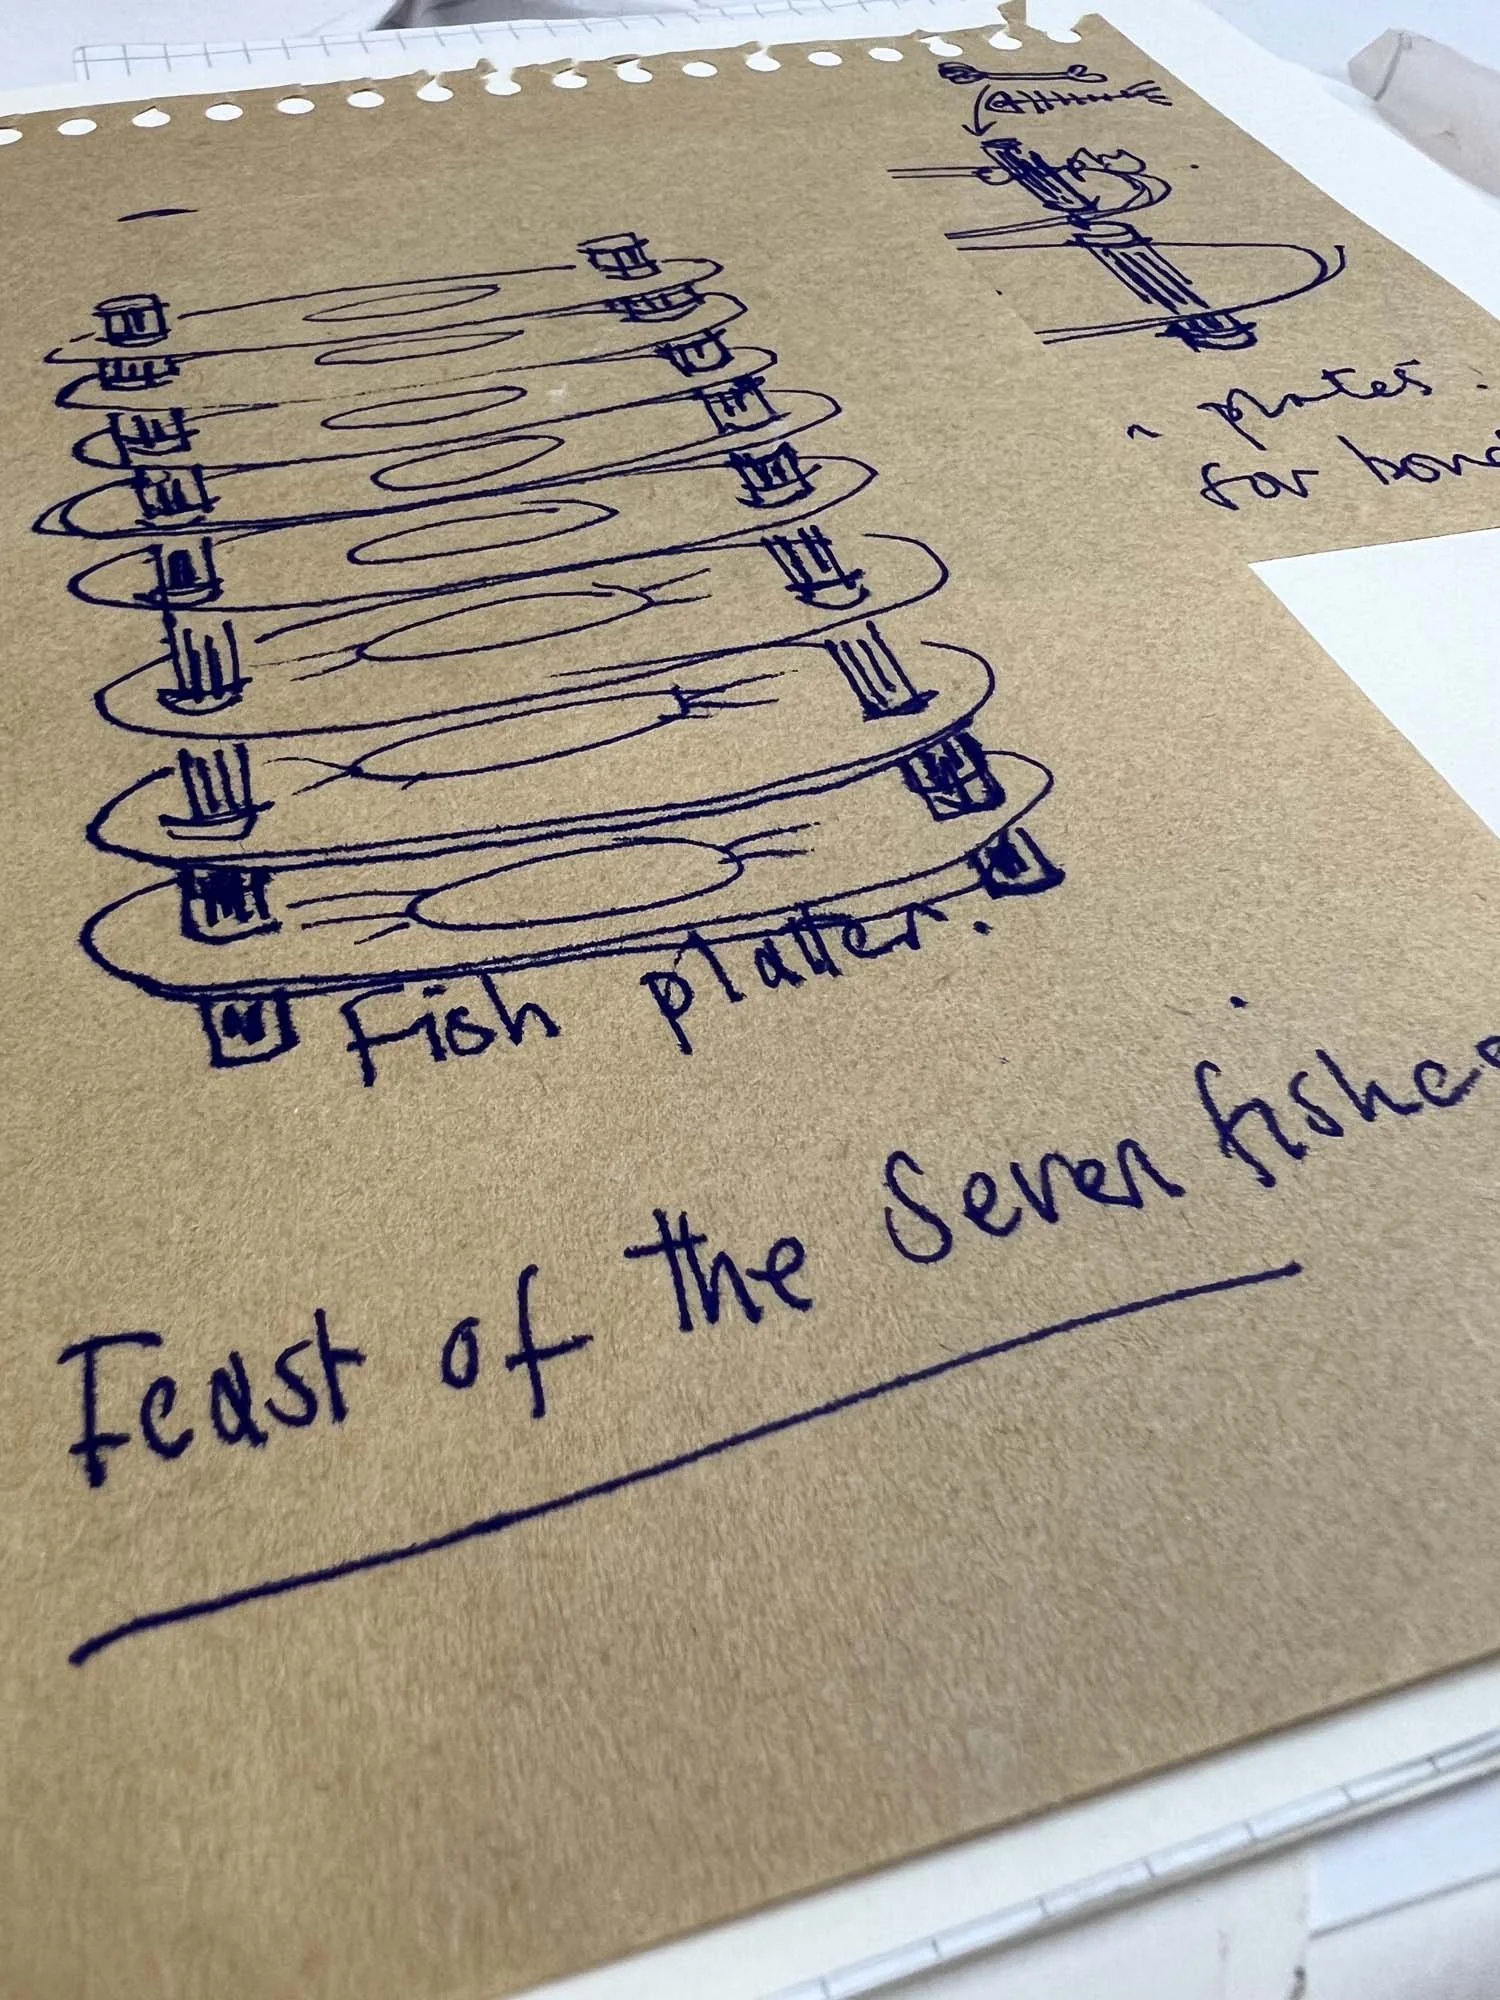 plates
for bon
Fish platter.
Feast of the Seven fishes